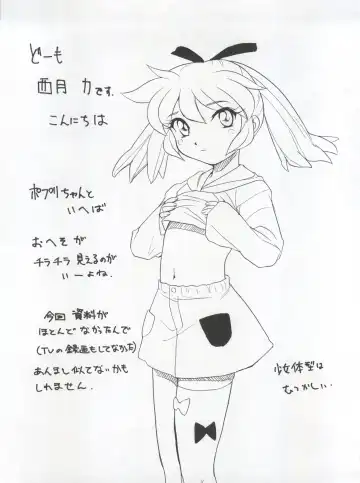 どーも
西月 力です.
こんにちは
ポプリちゃんと
いへば
おへそが
チラチラ見えるのが
いーよね.
今回 資料が
ほとんどなかったんで
(TVの録画もしてなかった)
あんまし似てないかも
しれません.
少女体型は
むつかしい..